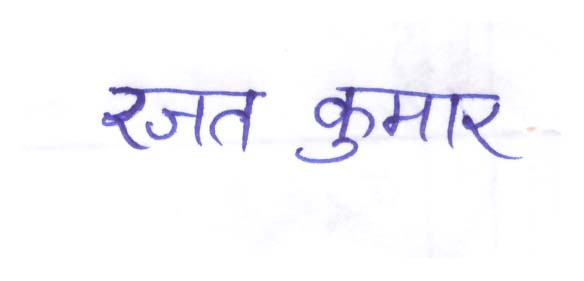 रजत कुमार